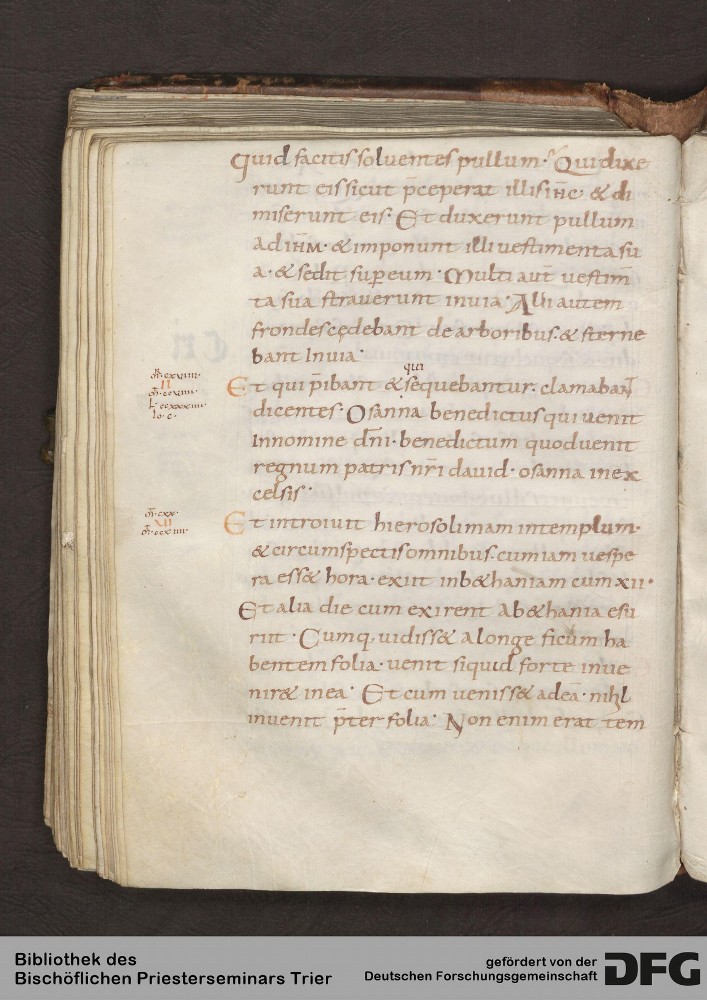 Quid facitis soluentes pullum· Qui dixe
runt eis sicut p̄ceperat illis ih̄c· & di
miserunt eis· Et duxerunt pullum
ad ih̄m· & imponunt illi uestimenta su
a· & sedit super eum· Multi aut̄ uestim̄
ta sua strauerunt in uia· Alii autem
frondes cędebant de arboribus· & sterne
bant in uia·
qui
Et qui p̄ibant & sequebantur· clamaban̄
dicentes· Osanna benedictus qui uenit
in nomine dn̄i· benedictum quod uenit
regnum patris nr̄i dauid· osanna in ex
celsis·
m̄r cxx·
XII
m̄ ccxiiii·
Et introiuit hierosolimam in templum·
& circumspectis omnibus· cum iam uespe
ra ess& hora· exiit in b&haniam cum xii·
Et alia die cum exirent a b&hania esu
riit· Cumq, uidiss& a longe ficum ha
bentem folia· uenit si quid forte inue
nir& in ea· Et cum ueniss& ad eā· nihl
inuenit p̄ter folia· Non enim erat tem̄
Bibliothek des
Bischöflichen Priesterseminars Trier
gefördert von der
Deutschen Forschungsgemeinschaft DFG